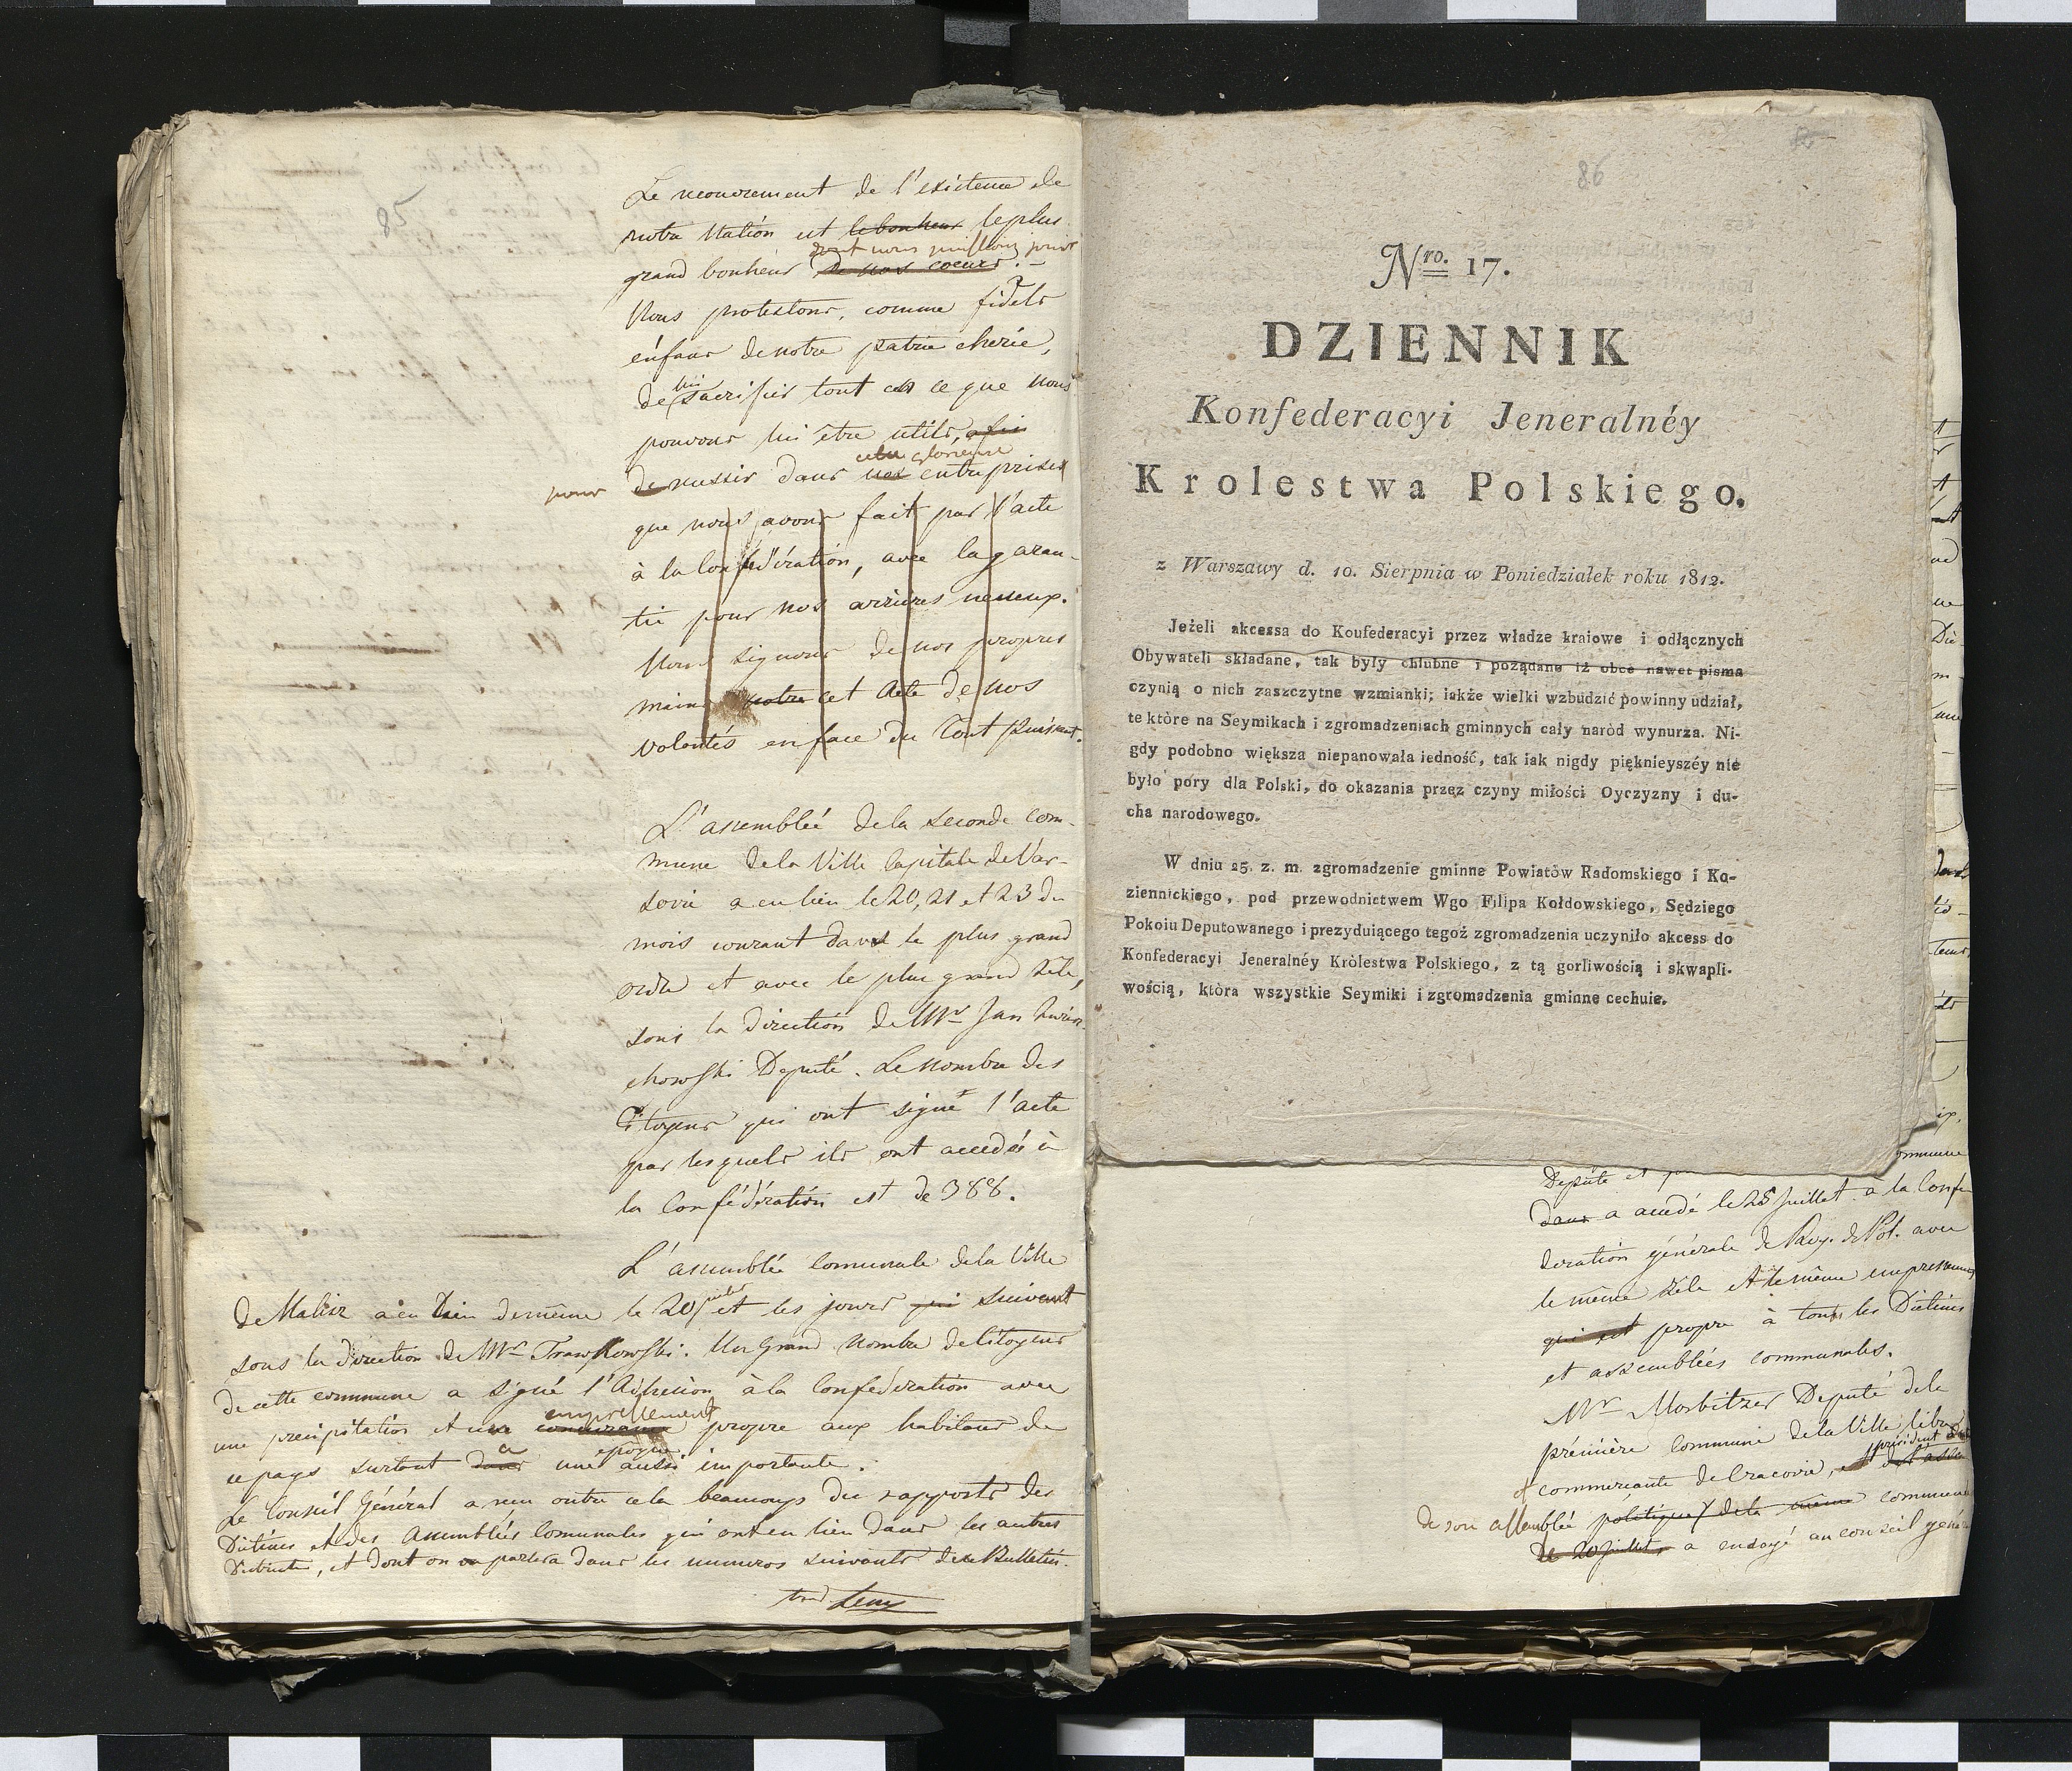 85
Le recouvrement de l'existence de
notre Nation est le bonheur le plus
dont nous puissions jouir
grand bonheur de nos coeurs. –
Nous protestons, comme fidels
enfans de notre patrie cherie,
de lui sacrifier tout ce que nous
pouvons lui être utils, afin
cette glorieuse
pour de reussir dans nos entreprises
que nous avons fait par l'acte
à la Confédération, avec la garan-
tie pour nos arrières neveux.
Nous signons de nos propres
mains notre cet Acte de nos
volontés en face du Tout Puissant.
L'assemblée de la seconde com-
mune de la Ville Capitale de Var-
sovie a eu lieu le 20, 21 et 23 du
mois courant dans le plus grand
ordre et avec le plus grand zèle,
sous la direction de Mr Jan
chowski Deputé. Le nombre des
Citoyens qui ont signé l'acte
par lesquels ils ont accedés à
la Confédération est de 388.
L'assemblée Communale de la Ville
de Kalisz a eu lieu de même le 20 juillet et les jours qui suivent
sous la direction de Mr. Un grand nombre de Citoyens
de cette commune a signé l'Adhesion à la Confédération avec
empressement
une precipitation et une propre aux habitans de
à epoque
ce pays surtout dans une aussi importante.
Le Conseil Général a reçu outre cela beaucoup du rapports des
Diètines et des Assemblées Communales qui ont eu lieu dans les autres
Districts, et dont on parlera dans les numeros suivants de ce Bulletin.
86
Nro. 17.
DZIENNIK
Konfederacyi Jeneralnéy
Krolestwa Polskiego.
z Warszawy d. 10. Sierpnia w Poniedziałek roku 1812.
Jeżeli akcessa do Koufederacyi przez władze kraiowe i odłącznych
Obywateli składane, tak były chlubne i poządane iż obce nawet pisma
czynią o nich zaszczytne wzmianki; iakże wielki wzbudzić powinny udział,
te które na Seymikach i zgromadzeniach gminnych cały naród wynurza. Ni-
gdy podobno większa niepanowała iedność, tak iak nigdy pięknieyszéy nie
było pory dla Polski, do okazania przez czyny miłości Oyczyzny i du-
cha narodowego.
W dniu 25. z. m. zgromadzenie gminne Powiatów Radomskiego i Ko-
ziennickiego, pod przewodnictwem Wgo Filipa Kołdowskiego, Sędziego
Pokoiu Deputowanego i prezyduiącego tegoż zgromadzenia uczyniło akcess do
Konfederacyi Jeneralnéy Królestwa Polskiego, z tą gorliwością i skwapli-
wością, która wszystkie Seymiki i zgromadzenia gminne cechuie.
Deputé et
dans a accedé le 28 Juillet a la Confe
deration générale de Roy. de Pol. avec
le même zèle et le même empressement
qui est propre à tous les Dietines
et assemblées communales.
Mr Morbitzer Deputé de la
prémière Commune de la Ville libre
président
et commerçante de Cracovie, et
de son assemblée politique de la même commune
de 20 juillet, a au conseil géné